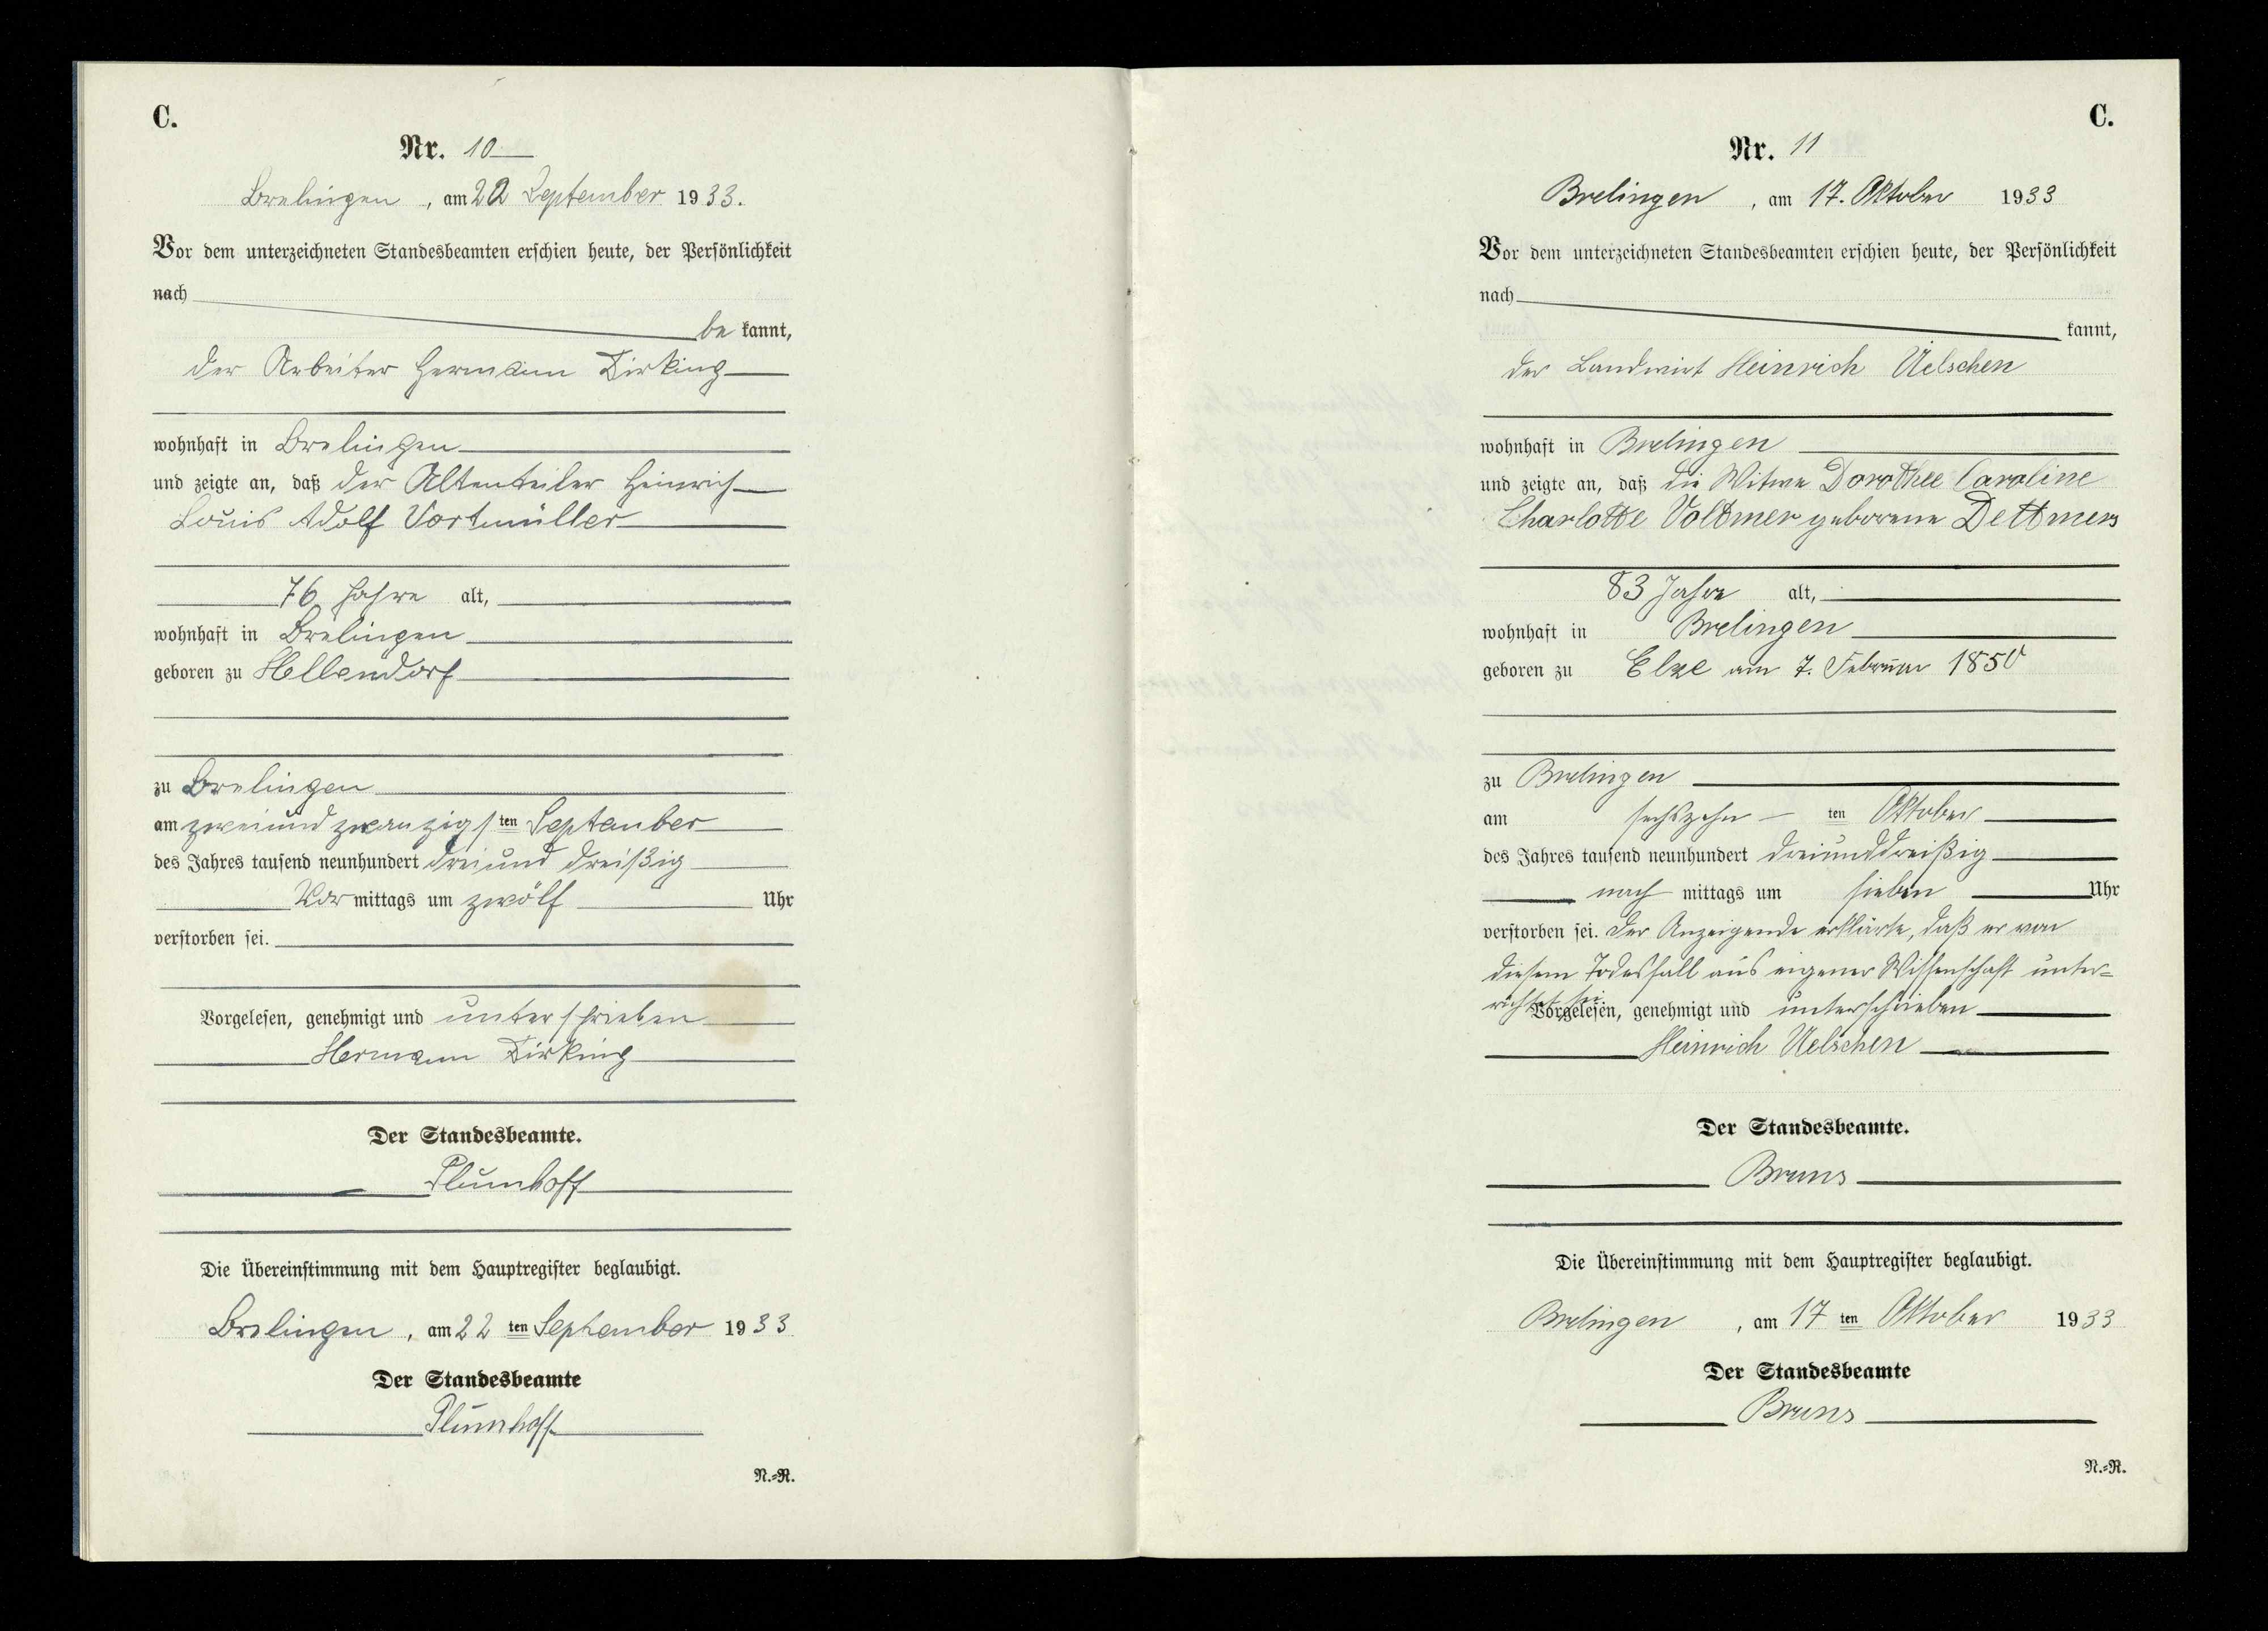 C.
Nr. 10
Brelingen, am 22 September 1933.
Vor dem unterzeichneten Standesbeamten erschien heute, der Persönlichkeit
nach
be kannt,
der Arbeiter Hermann Dirking
wohnhaft in Brelingen
und zeigte an, daß der Altenteiler Heinrich
Louis Adolf Vortmüller
76 Jahre alt,
wohnhaft in Brelingen
geboren zu Hellendorf
zu Brelingen
am zweiundzwanzigsten September
des Jahres tausend neunhundert dreiund dreißig
Vor mittags um zwölf Uhr
verstorben sei.
Vorgelesen, genehmigt und unterschrieben
Hermann Dirking
Der Standesbeamte.
Plumhoff
Die Übereinstimmung mit dem Hauptregister beglaubigt.
Brelingen, am 22 ten September 1933
Der Standesbeamte
Plumhoff
N.=R.
C.
Nr. 11
Brelingen, am 17. Oktober 1933
Vor dem unterzeichneten Standesbeamten erschien heute, der Persönlichkeit
nach
kannt,
der Landwirt Heinrich Üelschen
wohnhaft in Brelingen
und zeigte an, daß die Witwe Dorothee Caroline
Charlotte Voltmer geborene Dettmers
83 Jahre alt,
wohnhaft in Brelingen
geboren zu Elze am 7. Februar 1850
zu Brelingen
am sechszehn ten Oktober
des Jahres tausend neunhundert dreiunddreißig
nach mittags um sieben Uhr
verstorben sei. Der Anzeigende erklärte, daß er von
diesem Todesfall aus eigener Wissenschaft unter=
richtet sei.
Vorgelesen, genehmigt und unterschrieben
Heinrich Uelschen
Der Standesbeamte.
Bruns
Die Übereinstimmung mit dem Hauptregister beglaubigt.
Brelingen, am 17 ten Oktober 1933
Der Standesbeamte
Bruns
N.=R.